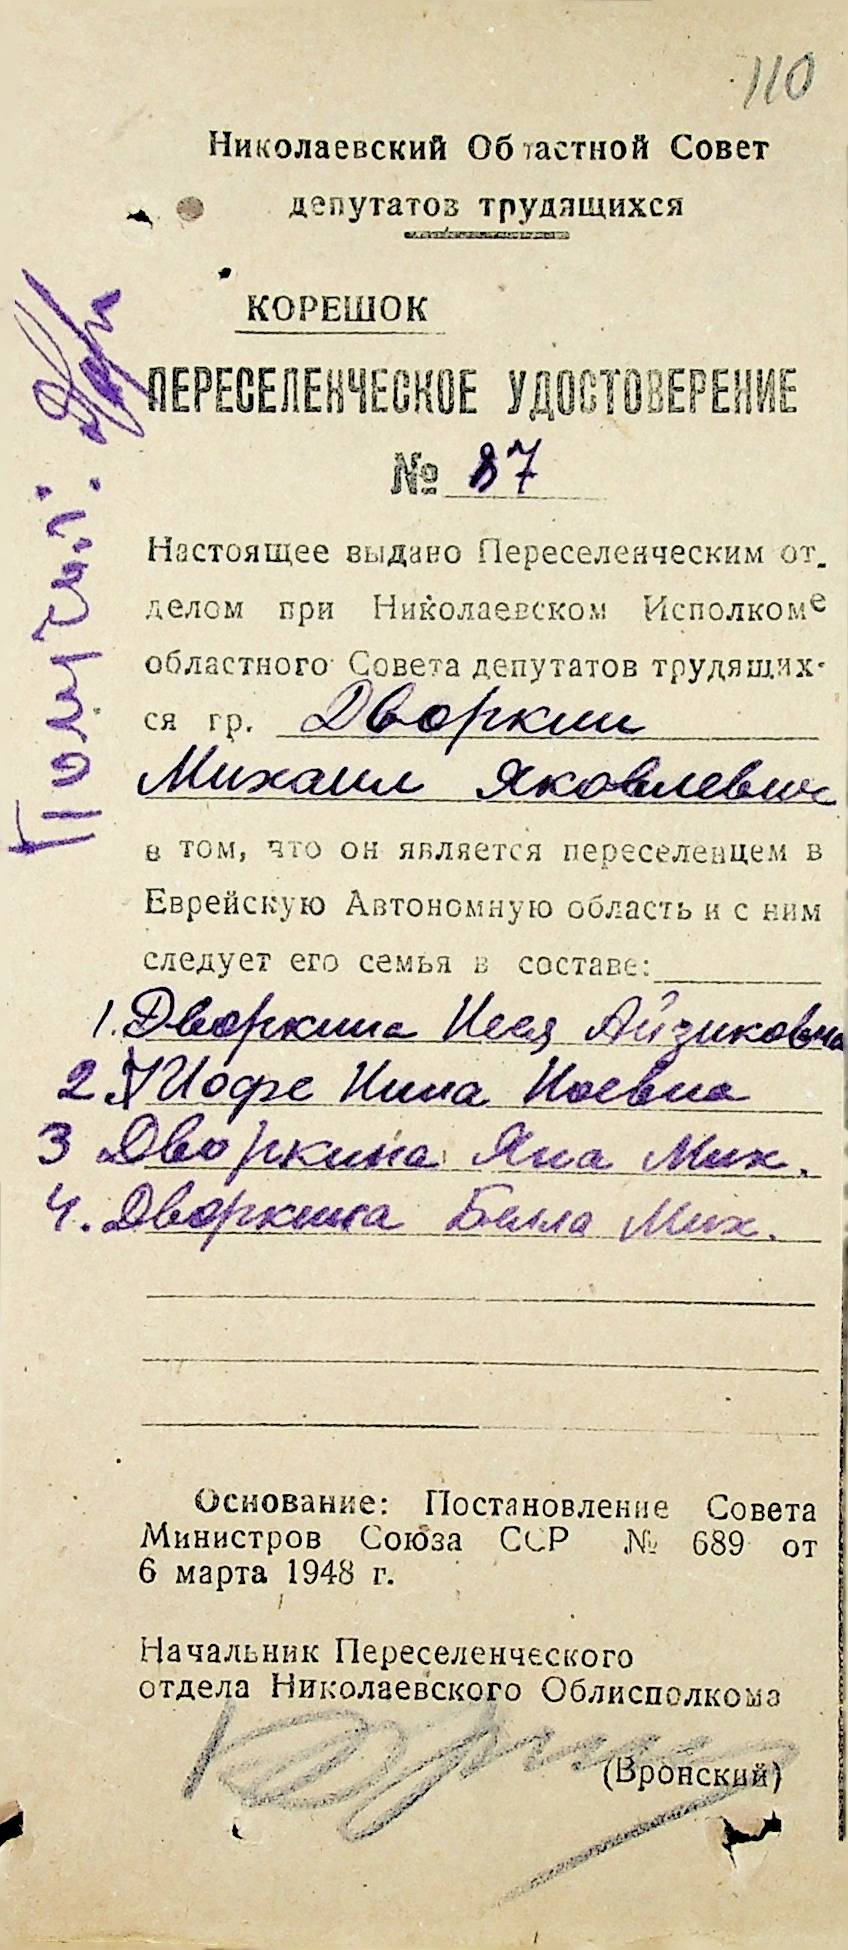 110
Николаевский Областной Совет
депутатов трудящихся
КОРЕШОК
ПЕРЕСЕЛЕНЧЕСКОЕ УДОСТОВЕРЕНИЕ
№ 87
Настоящее выдано Переселенческим от-
делом при Николаевском Исполкоме
областного Совета депутатов трудящих-
ся гр. Дворкин
Михаил Яковлевич
в том, что он является переселенцем в
Еврейскую Автономную область и с ним
следует его семья в составе:
1. Дворкина Неся Айзиковна
2. Иофе Нина Ноевна
3 Дворкина Яна Мих.
4. Дворкина Белла Мих.
Основание: Постановление Совета
Министров Союза ССР № 689 от
6 марта 1948 г.
Начальник Переселенческого
отдела Николаевского Облисполкома
(Вронский)
Получил: